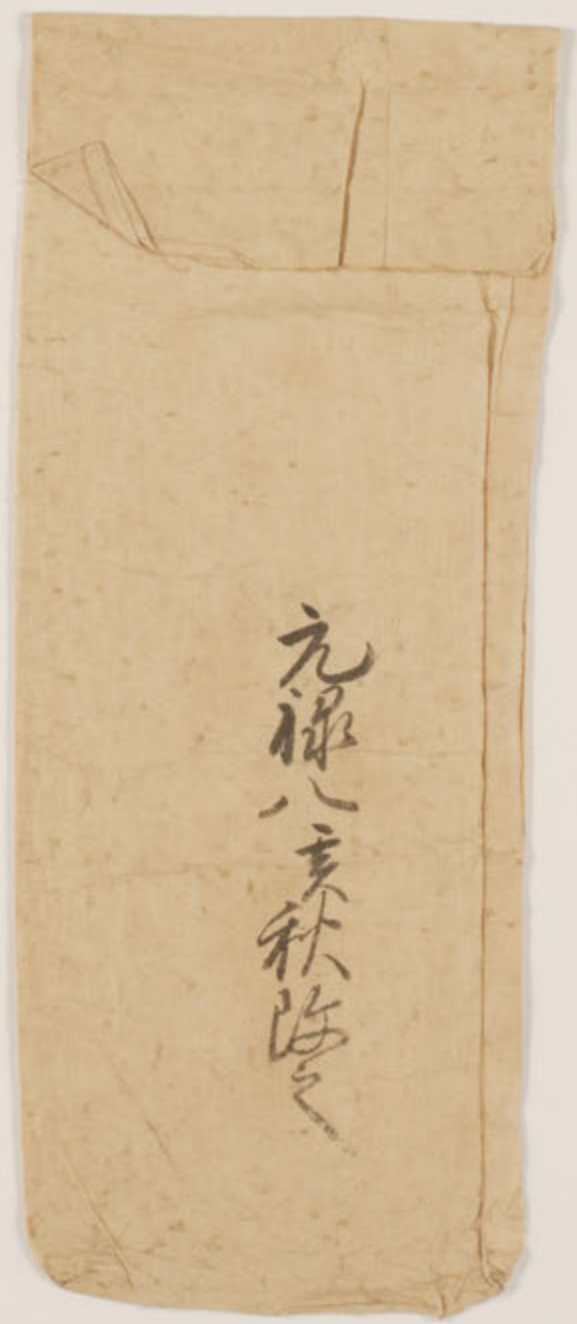 元禄八亥秋改之